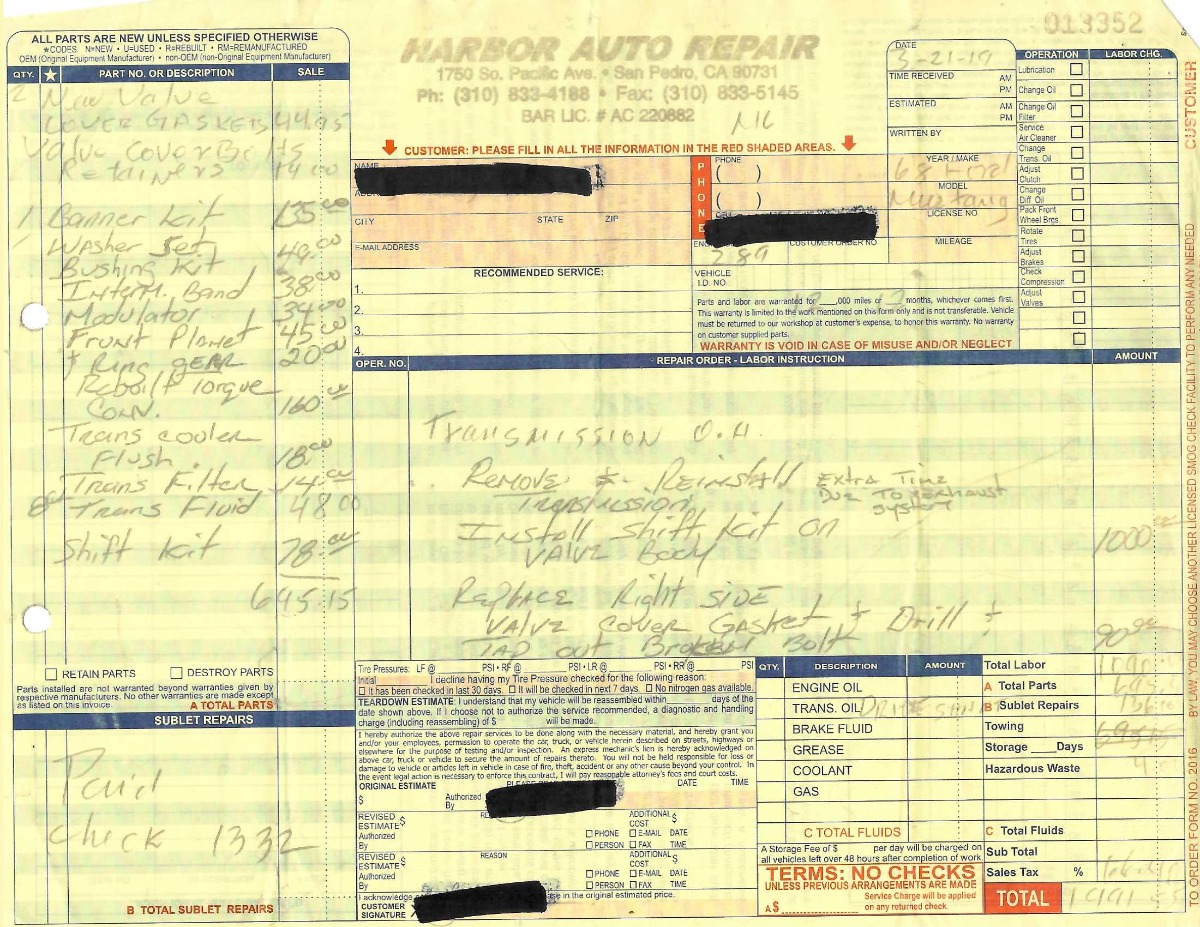 013352
ALL PARTS ARE NEW UNLESS SPECIFIED OTHERWISE
★CODES N=NEW • U=USED • R=REBUILT • RM=REMANUFACTURED
OEM (Original Equipment Manufacturer) • non-OEM (non-Original Equipment Manufacturer)
QTY. ★ PART NO. OR DESCRIPTION SALE
2 New Valve
Cover Gaskets 44.95
Valve Cover Bolts
Retainers
1 Banner Kit 135.00
Washer Set 49.00
Bushing Kit
Interm. Band 38.00
Modulator 34.00
Front Planet 45.00
+ Ring gear 20.00
Rebuilt Torque
Conv. 160.00
Trans cooler
Flush. 18.00
Trans Filter 14.00
Trans Fluid 48.00
Shift Kit 78.00
695.15
RETAIN PARTS DESTROY PARTS
Parts installed are not warranted beyond warranties given by
respective manufacturers. No other warranties are made except
as listed on this invoice.
A TOTAL PARTS
SUBLET REPAIRS
Paid
Check 1332
B TOTAL SUBLET REPAIRS
HARBOR AUTO REPAIR
1750 So. Pacific Ave. • San Pedro, CA 90731
Ph: (310) 833-4188 • Fax: (310) 833-5145
BAR LIC. # AC 220882
CUSTOMER: PLEASE FILL IN ALL THE INFORMATION IN THE RED SHADED AREAS.
DATE
-21-19
TIME RECEIVED AM
PM
ESTIMATED AM
PM
WRITTEN BY
NAME
CITY STATE ZIP
E-MAIL ADDRESS
PHONE
PHONE
( )
( )
YEAR / MAKE
68 Ford
MODEL
Mustang
LICENSE NO
CUSTOMER ORDER NO. MILEAGE
289
RECOMMENDED SERVICE:
1.
2.
3.
4.
VEHICLE
I.D. NO.
Parts and labor are warranted for 12 ,000 miles or months, whichever comes first.
This warranty is limited to the work mentioned on this form only and is not transferable. Vehicle
must be returned to our workshop at customer's expense, to honor this warranty. No warranty
on customer supplied parts.
WARRANTY IS VOID IN CASE OF MISUSE AND/OR NEGLECT
OPERATION LABOR CHG.
Lubrication
Change Oil
Change Oil
Filter
Service
Air Cleaner
Change
Trans. Oil
Adjust
Clutch
Change
Diff. Oil
Pack Front
Wheel Brgs.
Rotate
Tires
Adjust
Brakes
Check
Compression
Adjust
Valves
OPER. NO. REPAIR ORDER - LABOR INSTRUCTION AMOUNT
Transmission O.H
Remove & Reinstall Extra Time
Transmission Due To exhaust
system
Install Shift Kit on
Valve Body 1000.00
Replace Right side
Valve Cover Gasket & Drill &
Tap out Broken Bolt 90.00
Tire Pressures: LF @ PSI • RF @ PSI • LR @ PSI • RR @ PSI
Initial I decline having my Tire Pressure checked for the following reason:
It has been checked in last 30 days. It will be checked in next 7 days. No nitrogen gas available.
TEARDOWN ESTIMATE: I understand that my vehicle will be reassembled within days of the
date shown above. If I choose not to authorize the service recommended, a diagnostic and handling
charge (including reassembling) of $ will be made.
I hereby authorize the above repair services to be done along with the necessary material, and hereby grant you
and/or your employees, permission to operate the car, truck, or vehicle herein described on streets, highways or
elsewhere for the purpose of testing and/or inspection. An express mechanic's lien is hereby acknowledged on
above car, truck or vehicle to secure the amount of repairs thereto. You will not be held responsible for loss or
damage to vehicle or articles left in vehicle in case of fire, theft, accident or any other cause beyond your control. In
the event legal action is necessary to enforce this contract, I will pay reasonable attorney's fees and court costs.
ORIGINAL ESTIMATE DATE TIME
$ Authorized
By
REVISED
ESTIMATE $ ADDITIONAL
COST $
Authorized PHONE E-MAIL DATE
By PERSON FAX TIME
REVISED
ESTIMATE $ REASON ADDITIONAL
COST $
Authorized PHONE E-MAIL DATE
By PERSON FAX TIME
I acknowledge in the original estimated price.
CUSTOMER
SIGNATURE
QTY. DESCRIPTION AMOUNT
ENGINE OIL
TRANS. OIL
BRAKE FLUID
GREASE
COOLANT
GAS
C TOTAL FLUIDS
Total Labor 1090
A Total Parts 695
B Sublet Repairs
Towing
Storage Days
Hazardous Waste
C Total Fluids
Sub Total
Sales Tax %
TOTAL 1991
A Storage Fee of $ per day will be charged on
all vehicles left over 48 hours after completion of work.
TERMS: NO CHECKS
UNLESS PREVIOUS ARRANGEMENTS ARE MADE
Service Charge will be applied
A $ on any returned check.
CUSTOMER
BY LAW, YOU MAY CHOOSE ANOTHER LICENSED SMOG CHECK FACILITY TO PERFORM ANY NEEDED
TO ORDER FORM NO. 2016